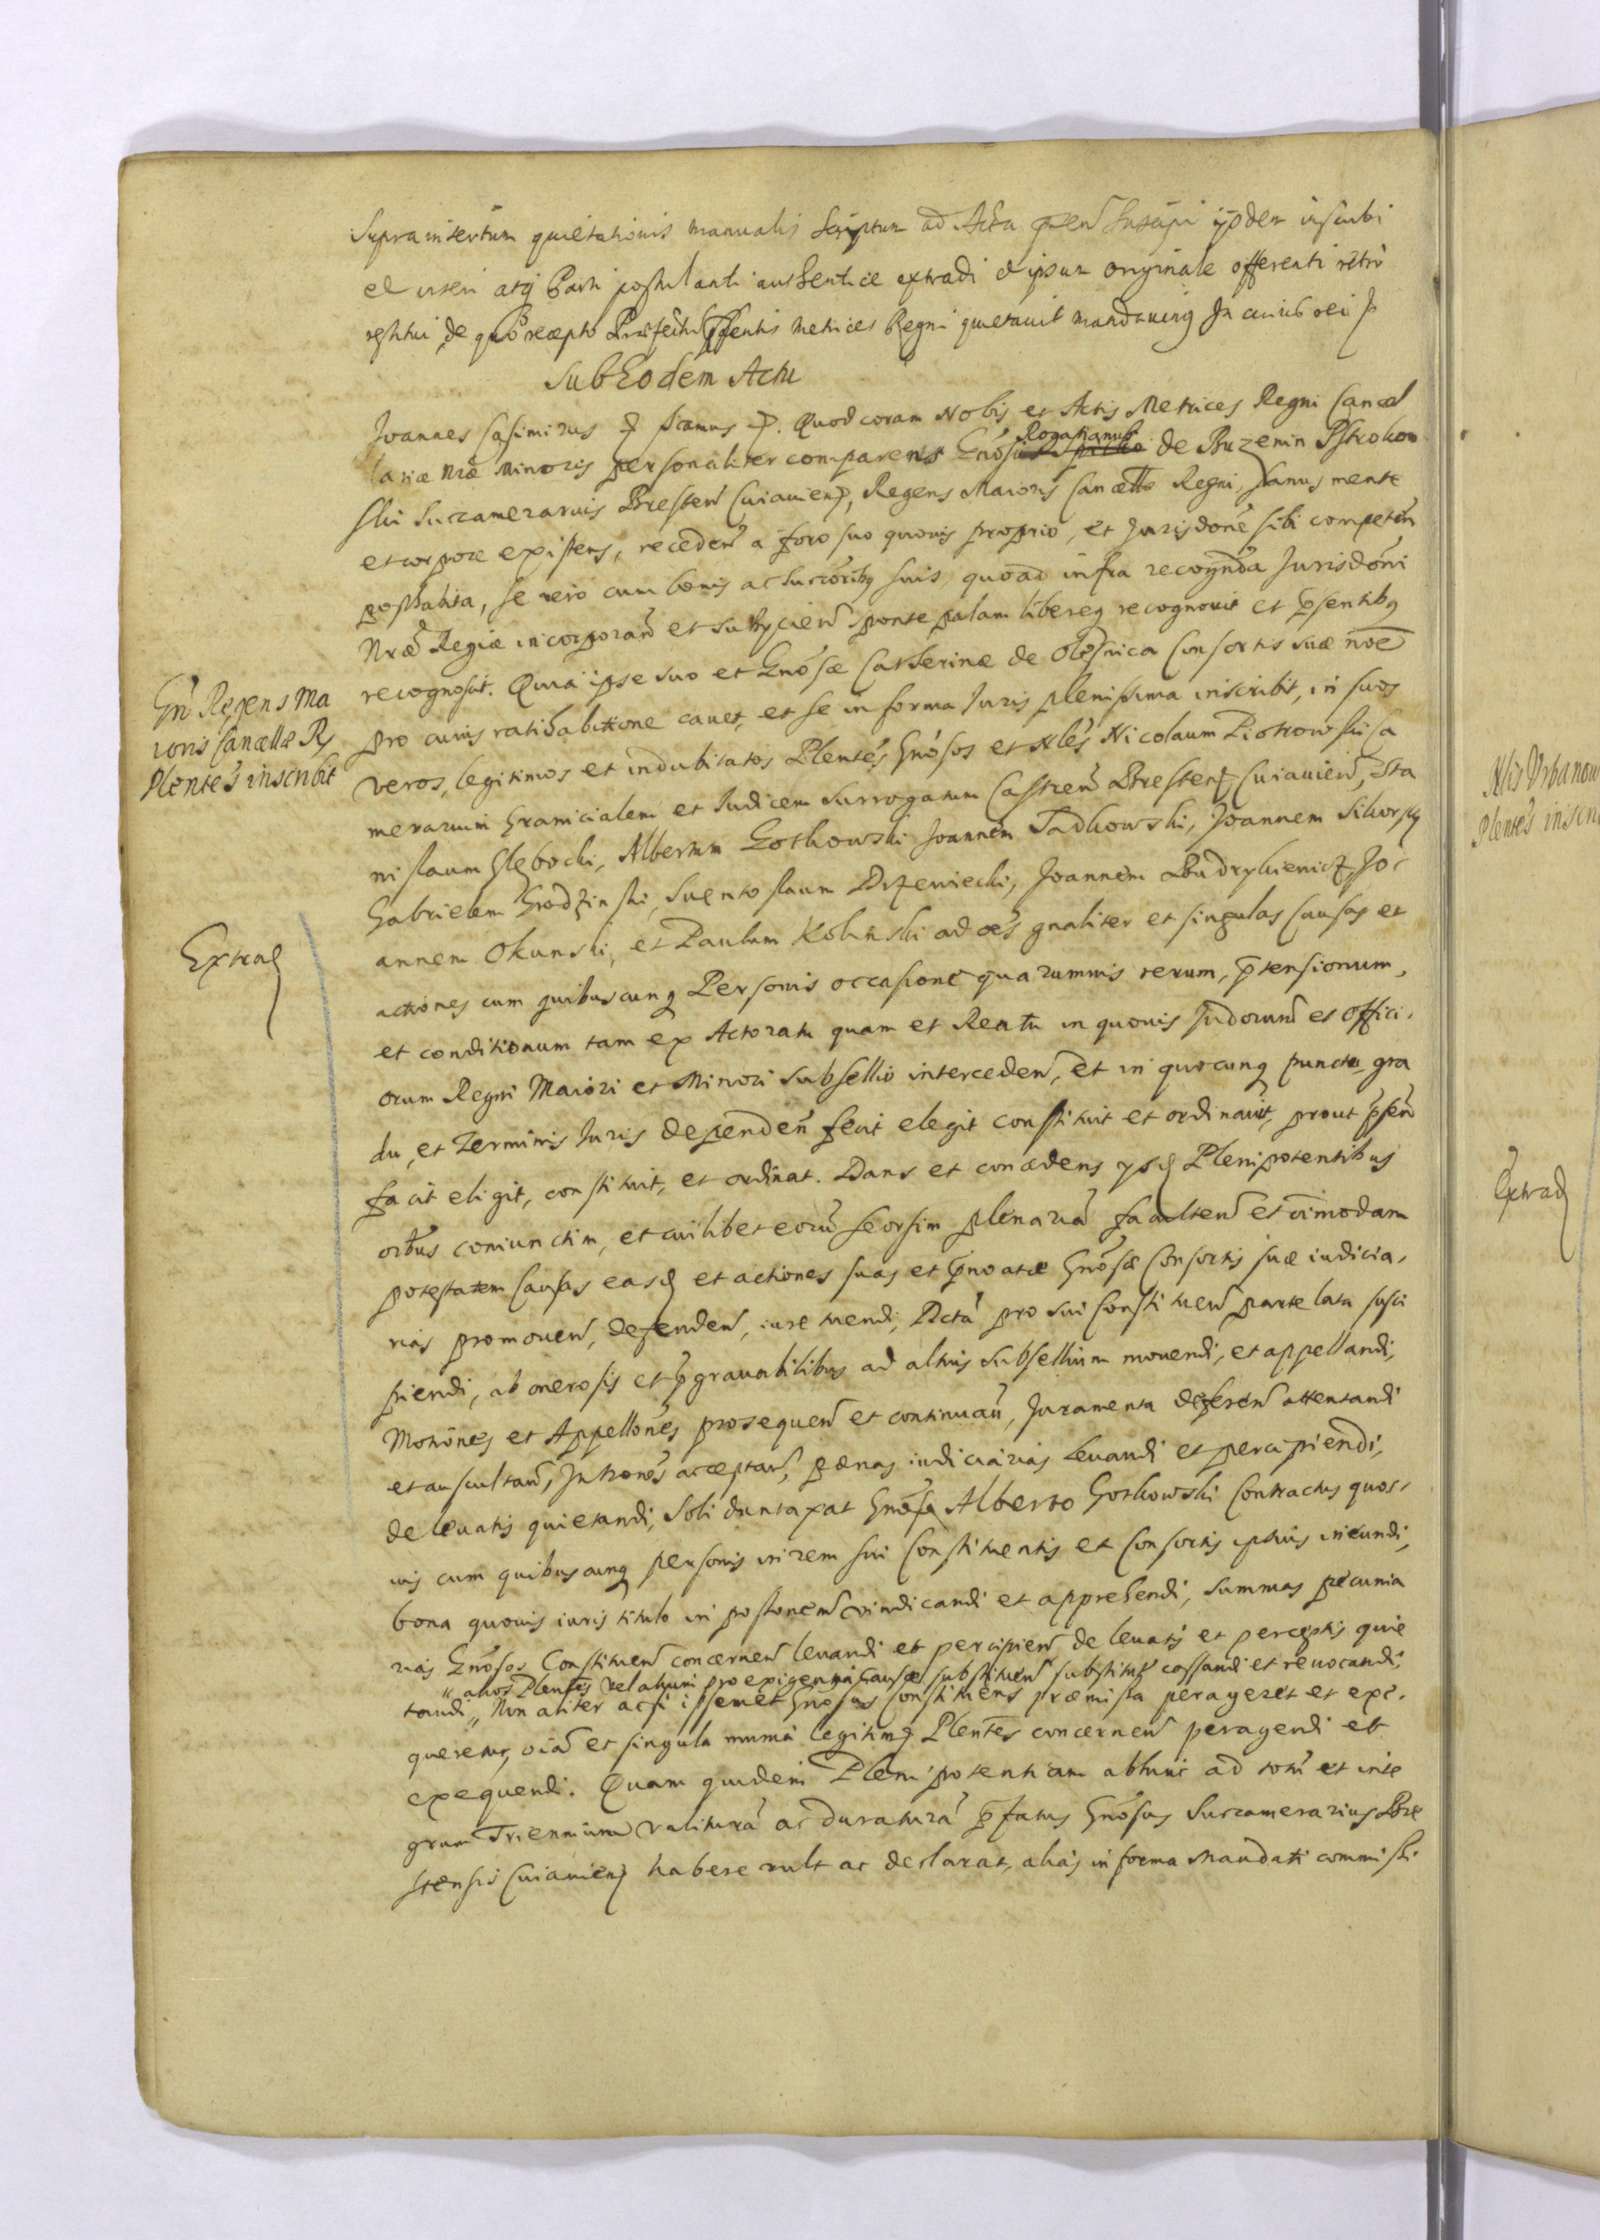 Supra insertum quietationis manualis Scriptum ad Acta prn̄ suscipi ijsdem inscribi
et inseri atq; Parti postulanti authentice extradi et ipsum originale offerenti retro
restitui, de quo recepto Metrices Regni quietavit mandavimg In cuius rei P
Sub Eodem Actu
Joannes Casimirus P ſcamus P. Quod coram Nobis et Actis Metrices Regni Cancel
lariæ Nræ Minoris personaliter comparens Gnōsus Rogatianus de Buzenin Pstrokon
ski Succamerarius Bresten̄ Cuiavien, Regens Maioris Cancellæ Regni, Sanus mente
et corpore existens, receden̄ a foro suo quovis proprio, et Jurisdone sibi competen̄
posthabita, se vero cum bonis ac Successoribg suis, quoad infra recognd̄a Jurisdoni
Nræ Regiæ incorporan̄ et subijcien̄ sponte palam libereq; recognovit et p̄sentibg
recognoscit. Quia ipse suo et Gnōsæ Catherinæ de Olesnica Consortis suæ noē
pro cuius ratihabitione cavet, et se in forma Juris plenissima inscribit, in suos
veros, legitimos et indubitatos Plentēs Gnōsos et Nlēs Nicolaum Piotrowski Ca
merarium Granicialem et Judicem Surrogatum Castren̄ Bresten Cuiavien̄, Sta
nislaum Glębocki, Albertum Gotkowski Joannem Sadkowski, Joannem Sikorsky
Gabrielem Grodzinski, Suentoslaum Drzewiecki, Joannem Budrykiewicz, Jo
annem Okunski, et Paulum Kolinski ad oēs gnaliter et singulas Causas et
actiones cum quibuscunq; Personis occasione quarumvis rerum, p̄tensionum,
et conditionum tam ex Actoratu quam et Reatu in quovis Judiorum et Offici-
orum Regni Maiori et Minori Subsellio interceden̄, et in quocunq; punctu gra
du, et Terminis Juris dependen̄ fecit elegit constituit et ordinavit, prout p̄sen̄
facit eligit, constituit, et ordinat. Dans et concedens ysd Plenipotentibus
oībus coniunctim, et cuilibet eorū seorsim plenariā facultem̄ et oīmodam
potestatem Causas easd et actiones suas et p̄noatæ Gnōsæ Consortis suæ iudicia-
rias promoven̄, defenden̄, iure tuendi, Acta pro sui Constituen̄ parte lata susci
piendi, ab onerosis et p̄gravabilibus ad altius Subsellium movendi, et appellandi,
Motiones et Appellones prosequen̄ et continuan̄, Juramenta deferen̄ attentandi
et auscultan̄, acceptan̄, pœnas iudiciarias levandi et percipiendi,
de levatis quietandi, Soli duntaxat Gnōso Alberto Gotkowski Contractus quos-
vis cum quibuscunq; personis in rem sui Constituentis et Consortis ipsius ineundi,
bona quovis iuris titulo in possonem̄ vindicandi et apprehendi, Summas pecunia
rias Gnōsos Constituen̄ concernen̄ levandi et percipien̄ de levatis et perceptis quie
" alios Plentēs velatium pro exigentia Causæ substituen̄ substitut cassandi et revocandi,
tandi " Non aliter acsi ipsemet Gnōsus Constituens præmissa perageret et exe-
queretur, oīa et singula legitimos Plentes concernen̄ peragendi et
exequendi. Quam quidem Plenipotentiam abhinc ad totū et inte
grum Triennium valiturā ac duraturā p̄fatus Gnōsus Succamerarius Bre
stensis Cuiavien habere vult ac declarat, aliās in forma Mandati commissi
Gn̄ Regens Ma
ioris Cancellæ R
Plentēs inscribit
Extrad
Nlis Urbanow
Plentēs inscri
Extrad